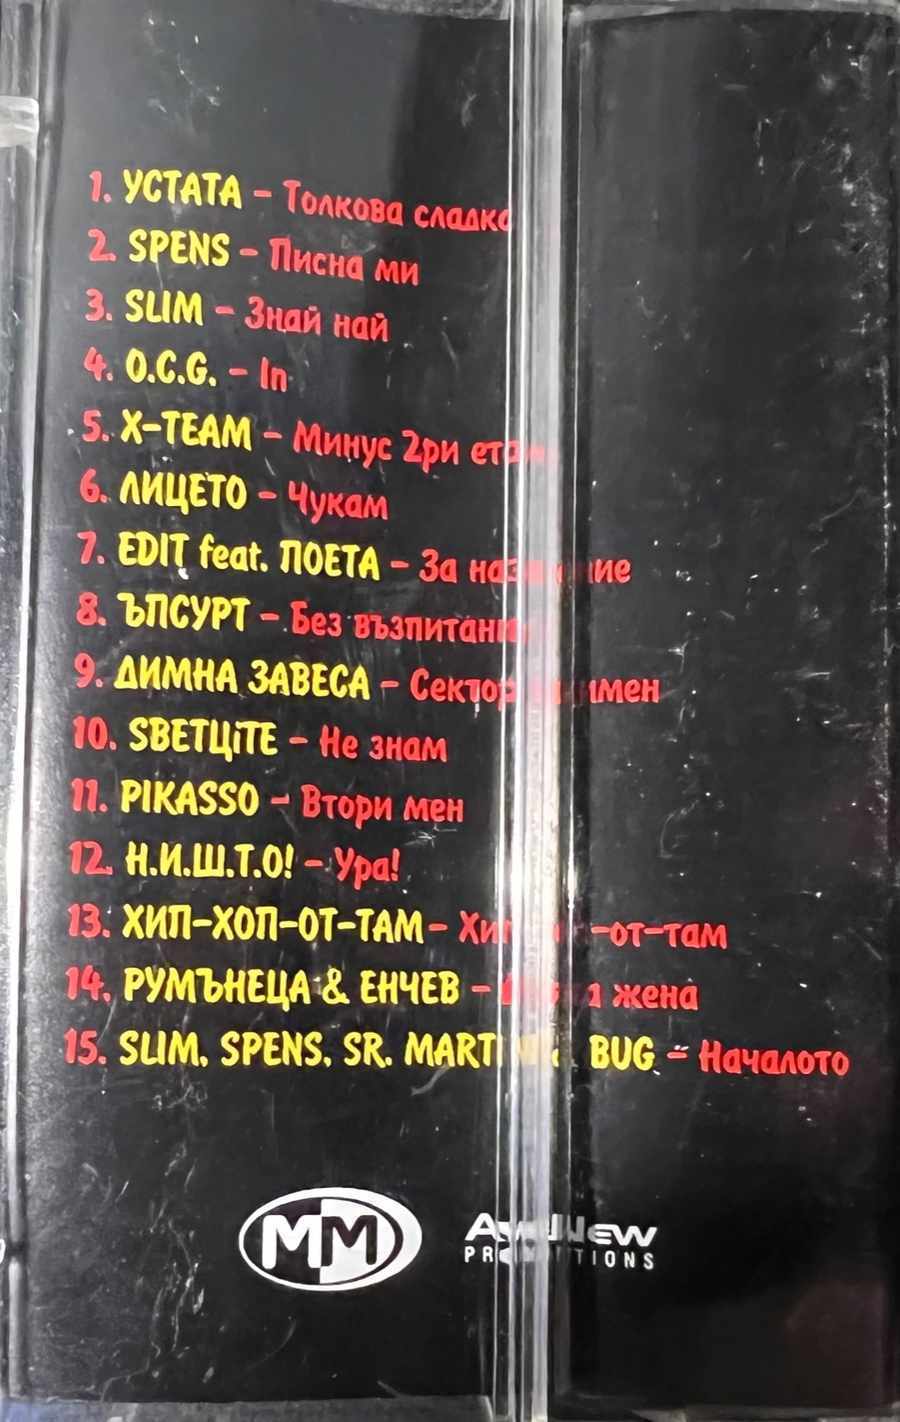 1. УСТАТА – Толкова сладко
2. SPENS – Писна ми
3. SLIM – Знай най
4. O.C.G. – In
5. X-TEAM – Минус 2ри
6. ЛИЦЕТО – Чукам
7. EDIT feat. ПОЕТА – За
8. ЪПСУРТ – Без възпитание
9. ДИМНА ЗАВЕСА – Сектор
10. SBETЦiTE – Не знам
11. PIKASSO – Втори мен
12. Н.И.Ш.Т.О! – Ура!
13. ХИП-ХОП-ОТ-ТАМ – Хип-хоп-от-там
14. РУМЪНЕЦА & ЕНЧЕВ – жена
15. SLIM, SPENS, SR. BUG – Началото
MM
PROMOTIONS